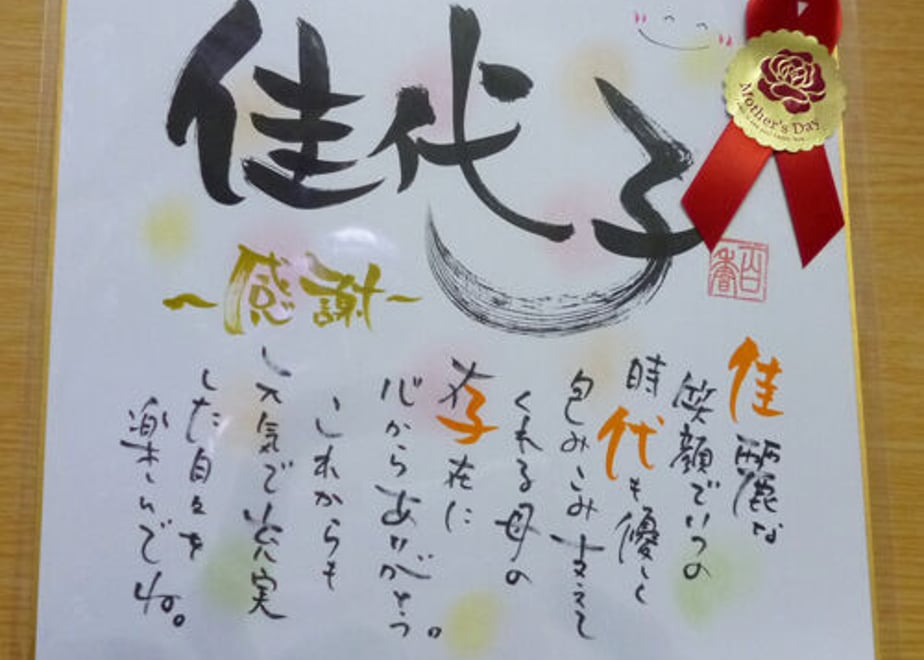 佳代子
Mother's Day
百香
~感謝~
佳麗な
笑顔でいつの
時代も優しく
包みこみ支えて
くれる母の
存在に
心からありがとう。
これからも
元気で充実
した日々を
楽しんでね。